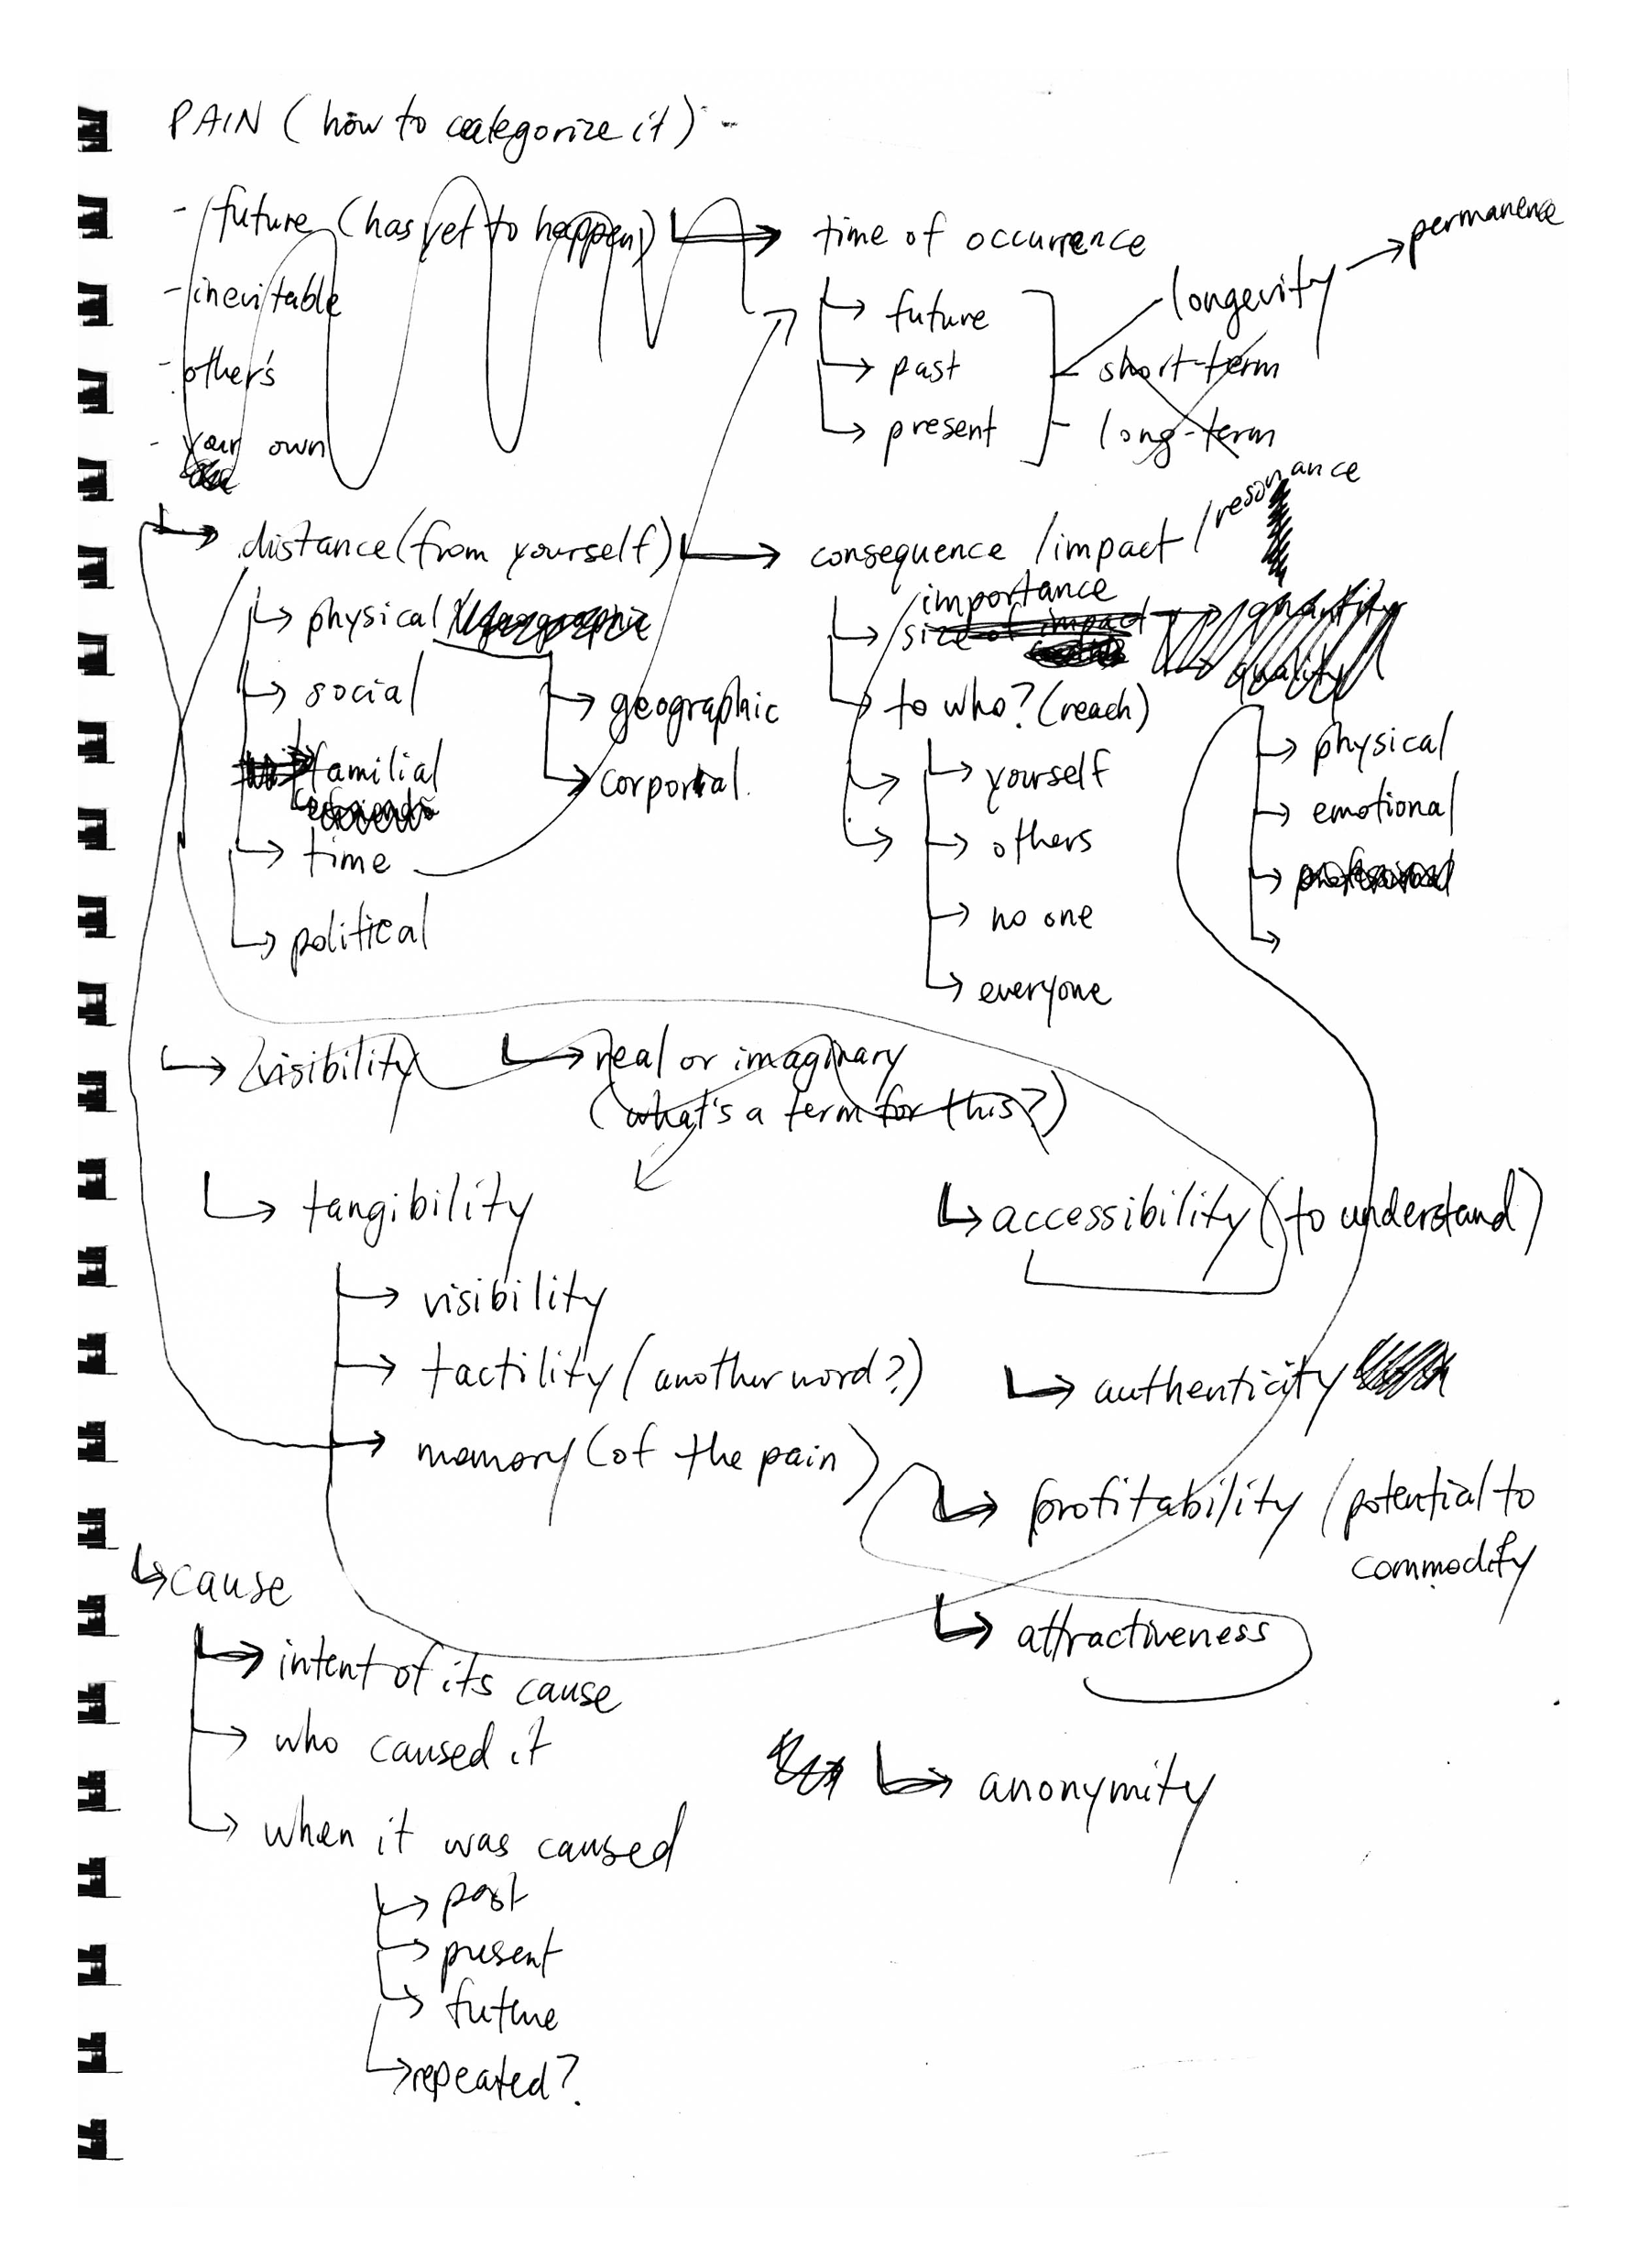 PAIN (how to categorize it) -
- future (has yet to happen)
- inevitable
- other's
- your own
time of occurrence
future
past
present
longevity
permanence
short-term
long-term
distance (from yourself)
physical
geographic
corporal
social
familial
time
political
consequence / impact / resonance
importance
size of impact
quantity
quality
to who? (reach)
yourself
others
no one
everyone
physical
emotional
visibility
real or imaginary
(what's a term for this?)
tangibility
visibility
tactility (another word?)
memory (of the pain)
accessibility (to understand)
authenticity
profitability / potential to
commodify
attractiveness
anonymity
cause
intent of its cause
who caused it
when it was caused
past
present
future
repeated?